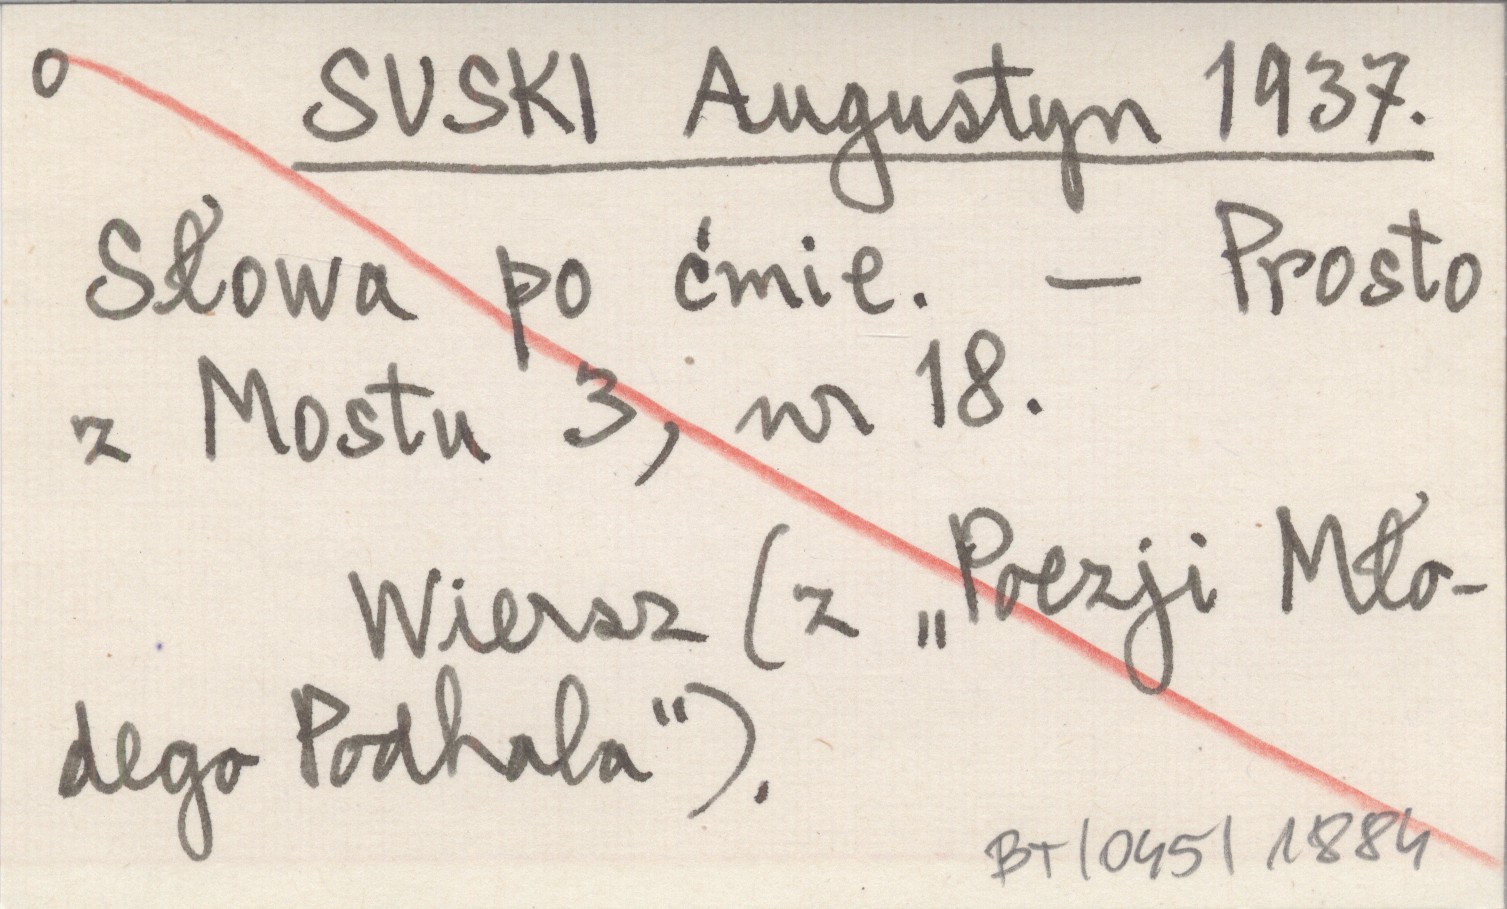 o SUSKI Augustyn 1937.
Słowa po ćmie. — Prosto
z Mostu 3, nr 18.
Wiersz (z „Poezji Mło-
dego Podhala").
BT/045/1884